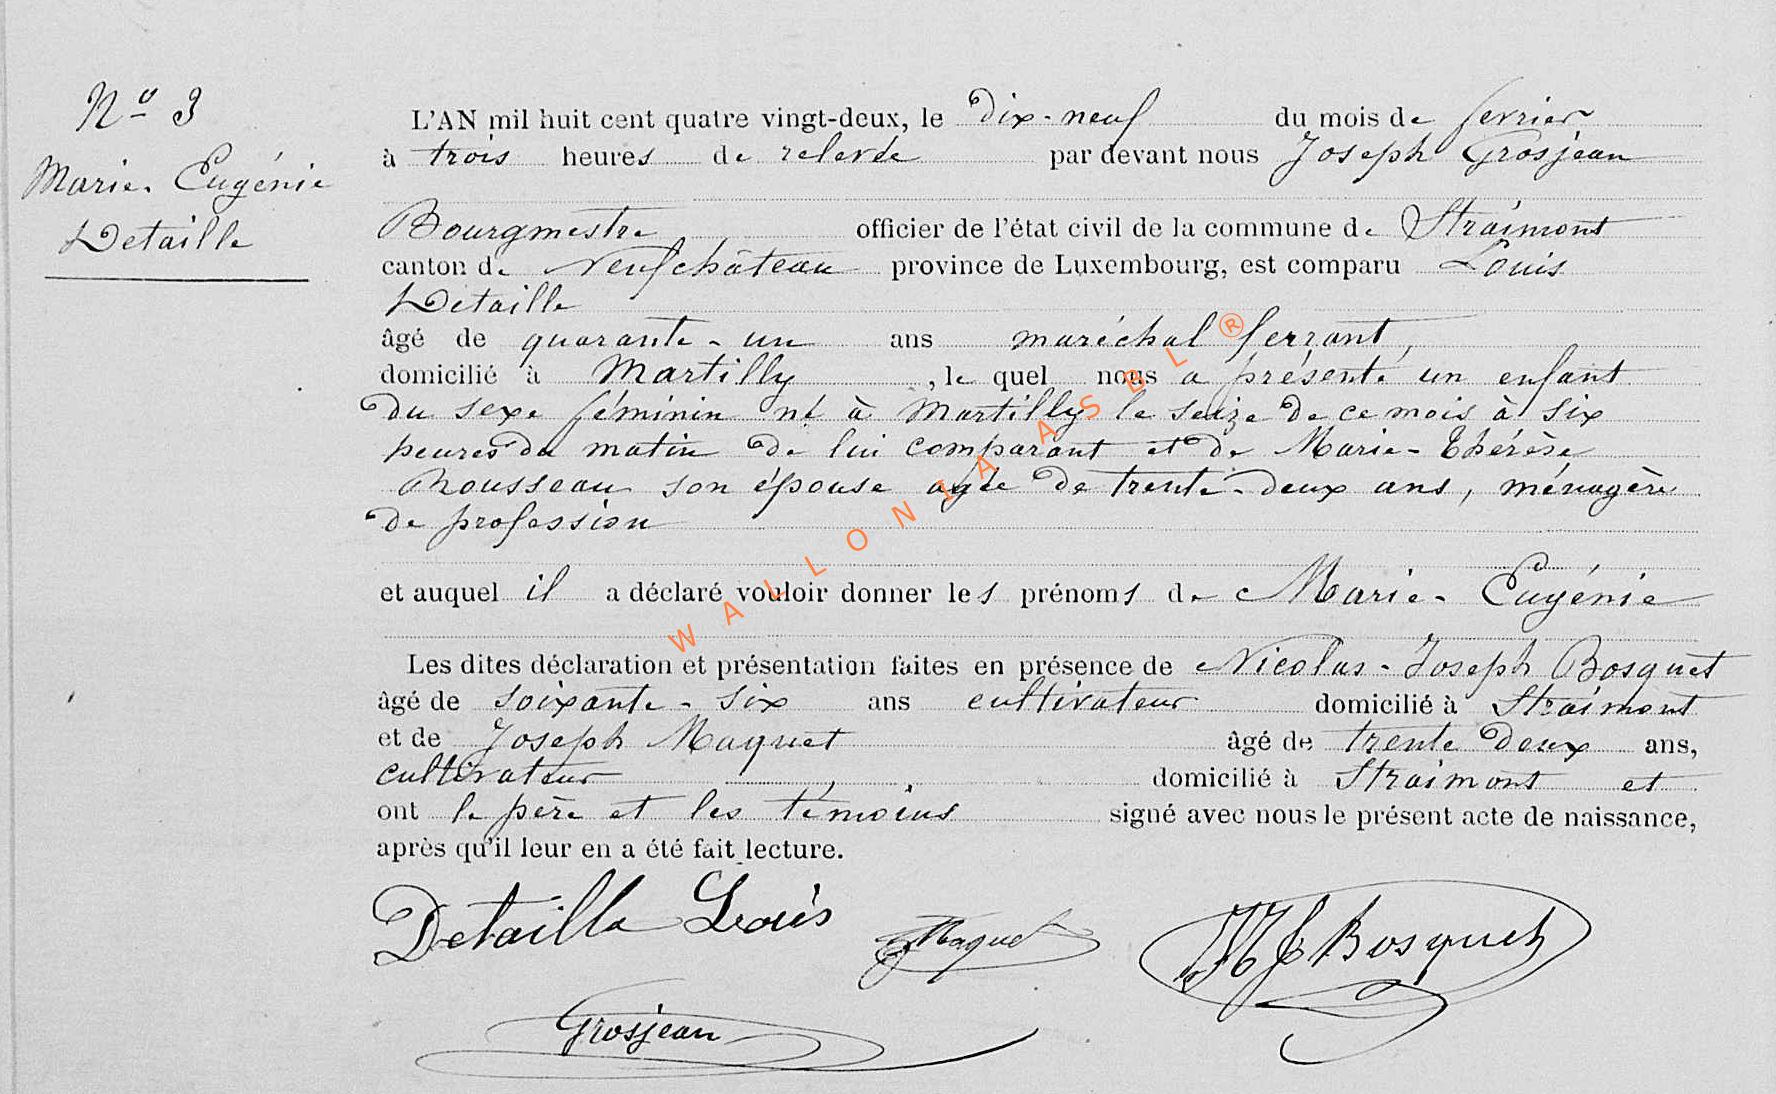 Nº 3
Marie-Eugénie
Detaille
L'AN mil huit cent quatre vingt-deux, le dix-neuf du mois de fevrier
à trois heures de relevée par devant nous Joseph Grosjean
Bourgmestre officier de l'état civil de la commune de Straimont
canton de Neufchâteau province de Luxembourg, est comparu Louis
Detaille
âgé de quarante-un ans maréchal ferrant,
domicilié à Martilly, le quel nous a présenté un enfant
du sexe féminin né à Martilly le seize de ce mois à six
heures du matin de lui comparant et de Marie-Thérèse
Rousseau son épouse agée de trente-deux ans, ménagère
de profession
et auquel il a déclaré vouloir donner les prénoms de Marie-Eugénie
Les dites déclaration et présentation faites en présence de Nicolas-Joseph Bosquet
âgé de soixante-six ans cultivateur domicilié à Straimont
et de Joseph Maquet âgé de trente deux ans,
cultivateur domicilié à Straimont et
ont le père et les témoins signé avec nous le présent acte de naissance,
après qu'il leur en a été fait lecture.
Detaille Louis J Maquet NJ Bosquet
Grosjean
WALLONIA ASBL ®